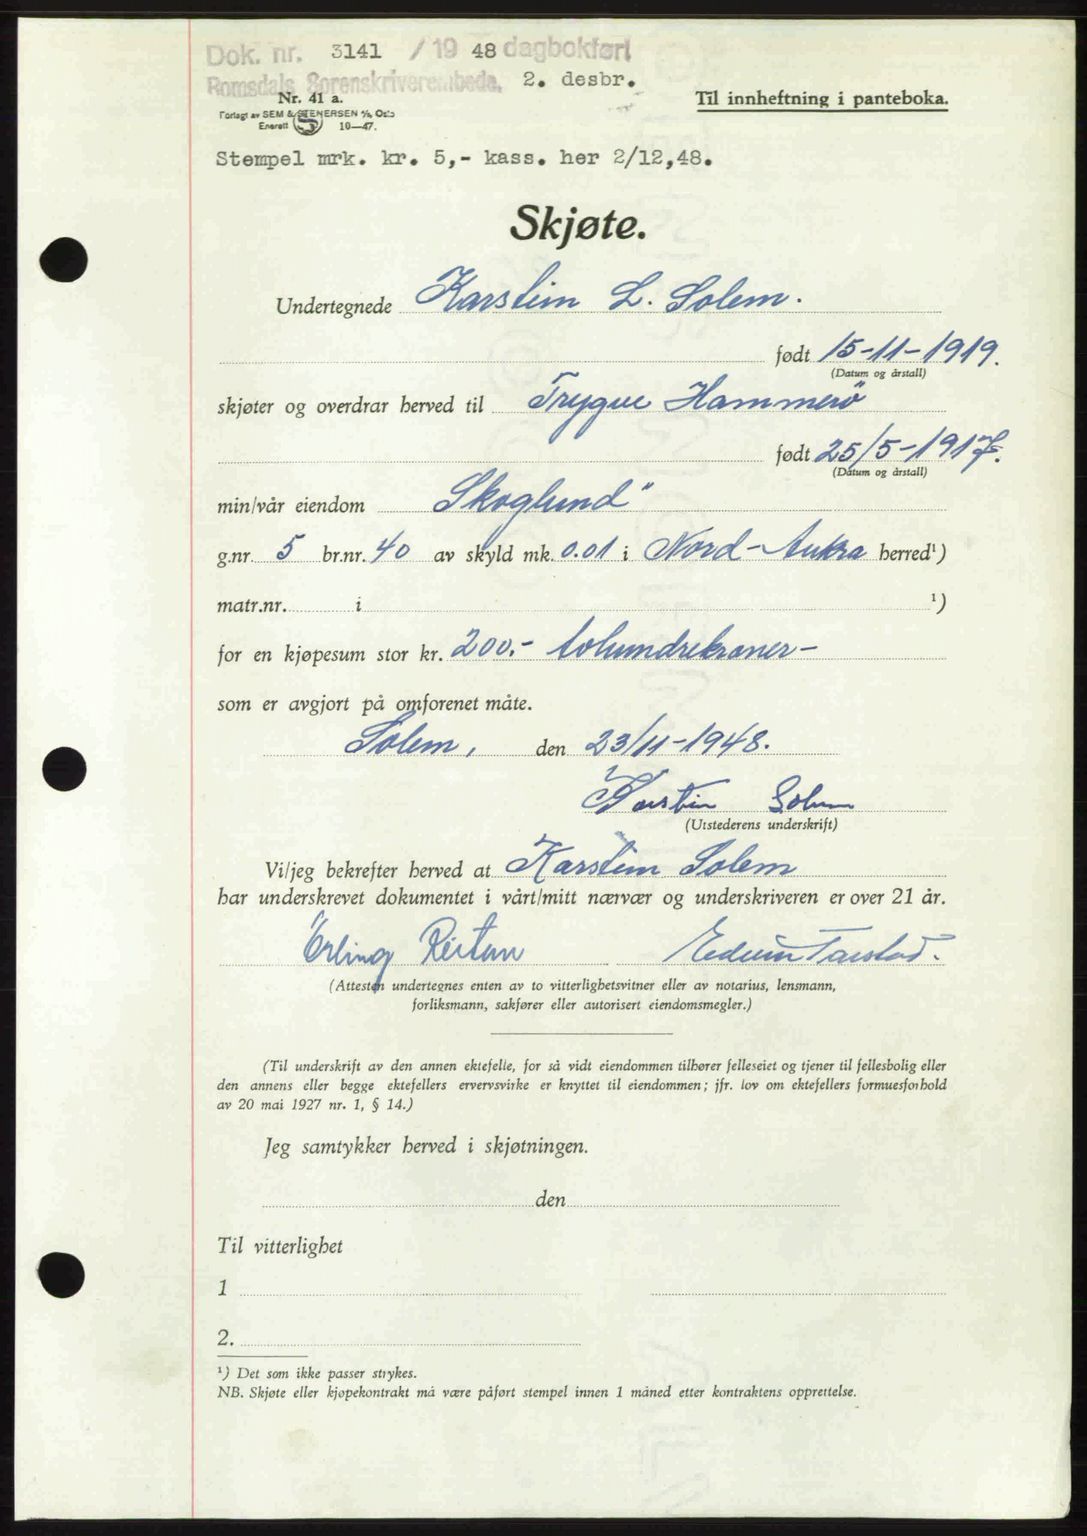 Dok. nr. 3141 / 19 48 dagbokført
Romsdals Sorenskriverembede, 2. desbr.
Nr. 41 a.
Forlagt av SEM & STENERSEN A/S, Oslo
Enerett 10—47.
Til innheftning i panteboka.
Stempel mrk. kr. 5,- kass. her 2/12,48.
Skjøte.
Undertegnede Karstein L. Solem.
født 15-11-1919.
(Datum og årstall)
skjøter og overdrar herved til Trygve Hammerö
født 25/5-1917.
(Datum og årstall)
min/vår eiendom Skoglund"
g.nr. 5 br.nr. 40 av skyld mk. 0.01 i Nord-Aukra herred¹)
matr.nr. i ¹)
for en kjøpesum stor kr. 200.- tohundrekroner-
som er avgjort på omforenet måte.
Solem, den 23/11-1948.
Karstein Solem
(Utstederens underskrift)
Vi/jeg bekrefter herved at Karstein Solem
har underskrevet dokumentet i vårt/mitt nærvær og underskriveren er over 21 år.
Erling Reitan Edvin Tarstad.
(Attesten undertegnes enten av to vitterlighetsvitner eller av notarius, lensmann,
forliksmann, sakfører eller autorisert eiendomsmegler.)
(Til underskrift av den annen ektefelle, for så vidt eiendommen tilhører felleseiet og tjener til fellesbolig eller
den annens eller begge ektefellers ervervsvirke er knyttet til eiendommen; jfr. lov om ektefellers formuesforhold
av 20 mai 1927 nr. 1, § 14.)
Jeg samtykker herved i skjøtningen.
den
Til vitterlighet
1
2.
¹) Det som ikke passer strykes.
NB. Skjøte eller kjøpekontrakt må være påført stempel innen 1 måned etter kontraktens opprettelse.